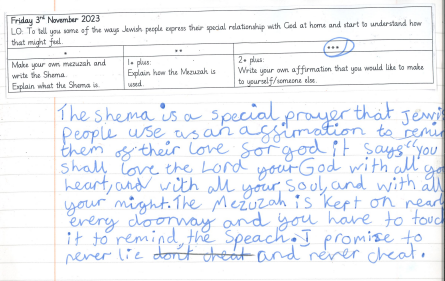 Friday 3rd November 2023
LO: To tell you some of the ways Jewish people express their special relationship with God at home and start to understand how
that might feel.
*
**
***
Make your own mezuzah and
write the Shema.
Explain what the Shema is.
1* plus:
Explain how the Mezuzah is
used.
2* plus:
Write your own affirmation that you would like to make
to yourself/someone else.
The Shema is a special prayer that Jewi
people use as an affirmation to remi
them of their love for god it says "You
shall love the Lord your God with all yo
heart, and with all your Soul, and with all
your might. The Mezuzah is kept on near
every doorway and you have to touc
it to remind, the Speach. I promise to
never lie don't cheat and never cheat.